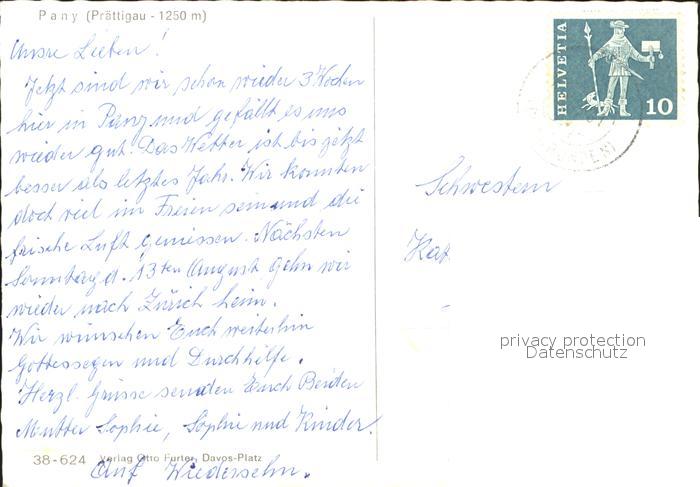 Pany (Prättigau - 1250 m)
Unsre Lieben!
Jetzt sind wir schon wieder 3 Wochen
hier in Pany und gefällt es uns
wieder gut. Das Wetter ist bis jetzt
besser als letztes Jahr. Wir konnten
doch viel im Freien sein und die
frische Luft geniessen. Nächsten
Sonntag d. 13ten August gehn wir
wieder nach Zürich heim.
Wir wünschen Euch weiterhin
Gottessegen und Durchhilfe.
Herzl. Grüsse senden Euch Beiden
Mutter Sophie, Sophie und Kinder.
Auf Wiedersehn.
38-624 Verlag Otto Furter, Davos-Platz
HELVETIA
10
Schwestern
Kat
privacy protection
Datenschutz